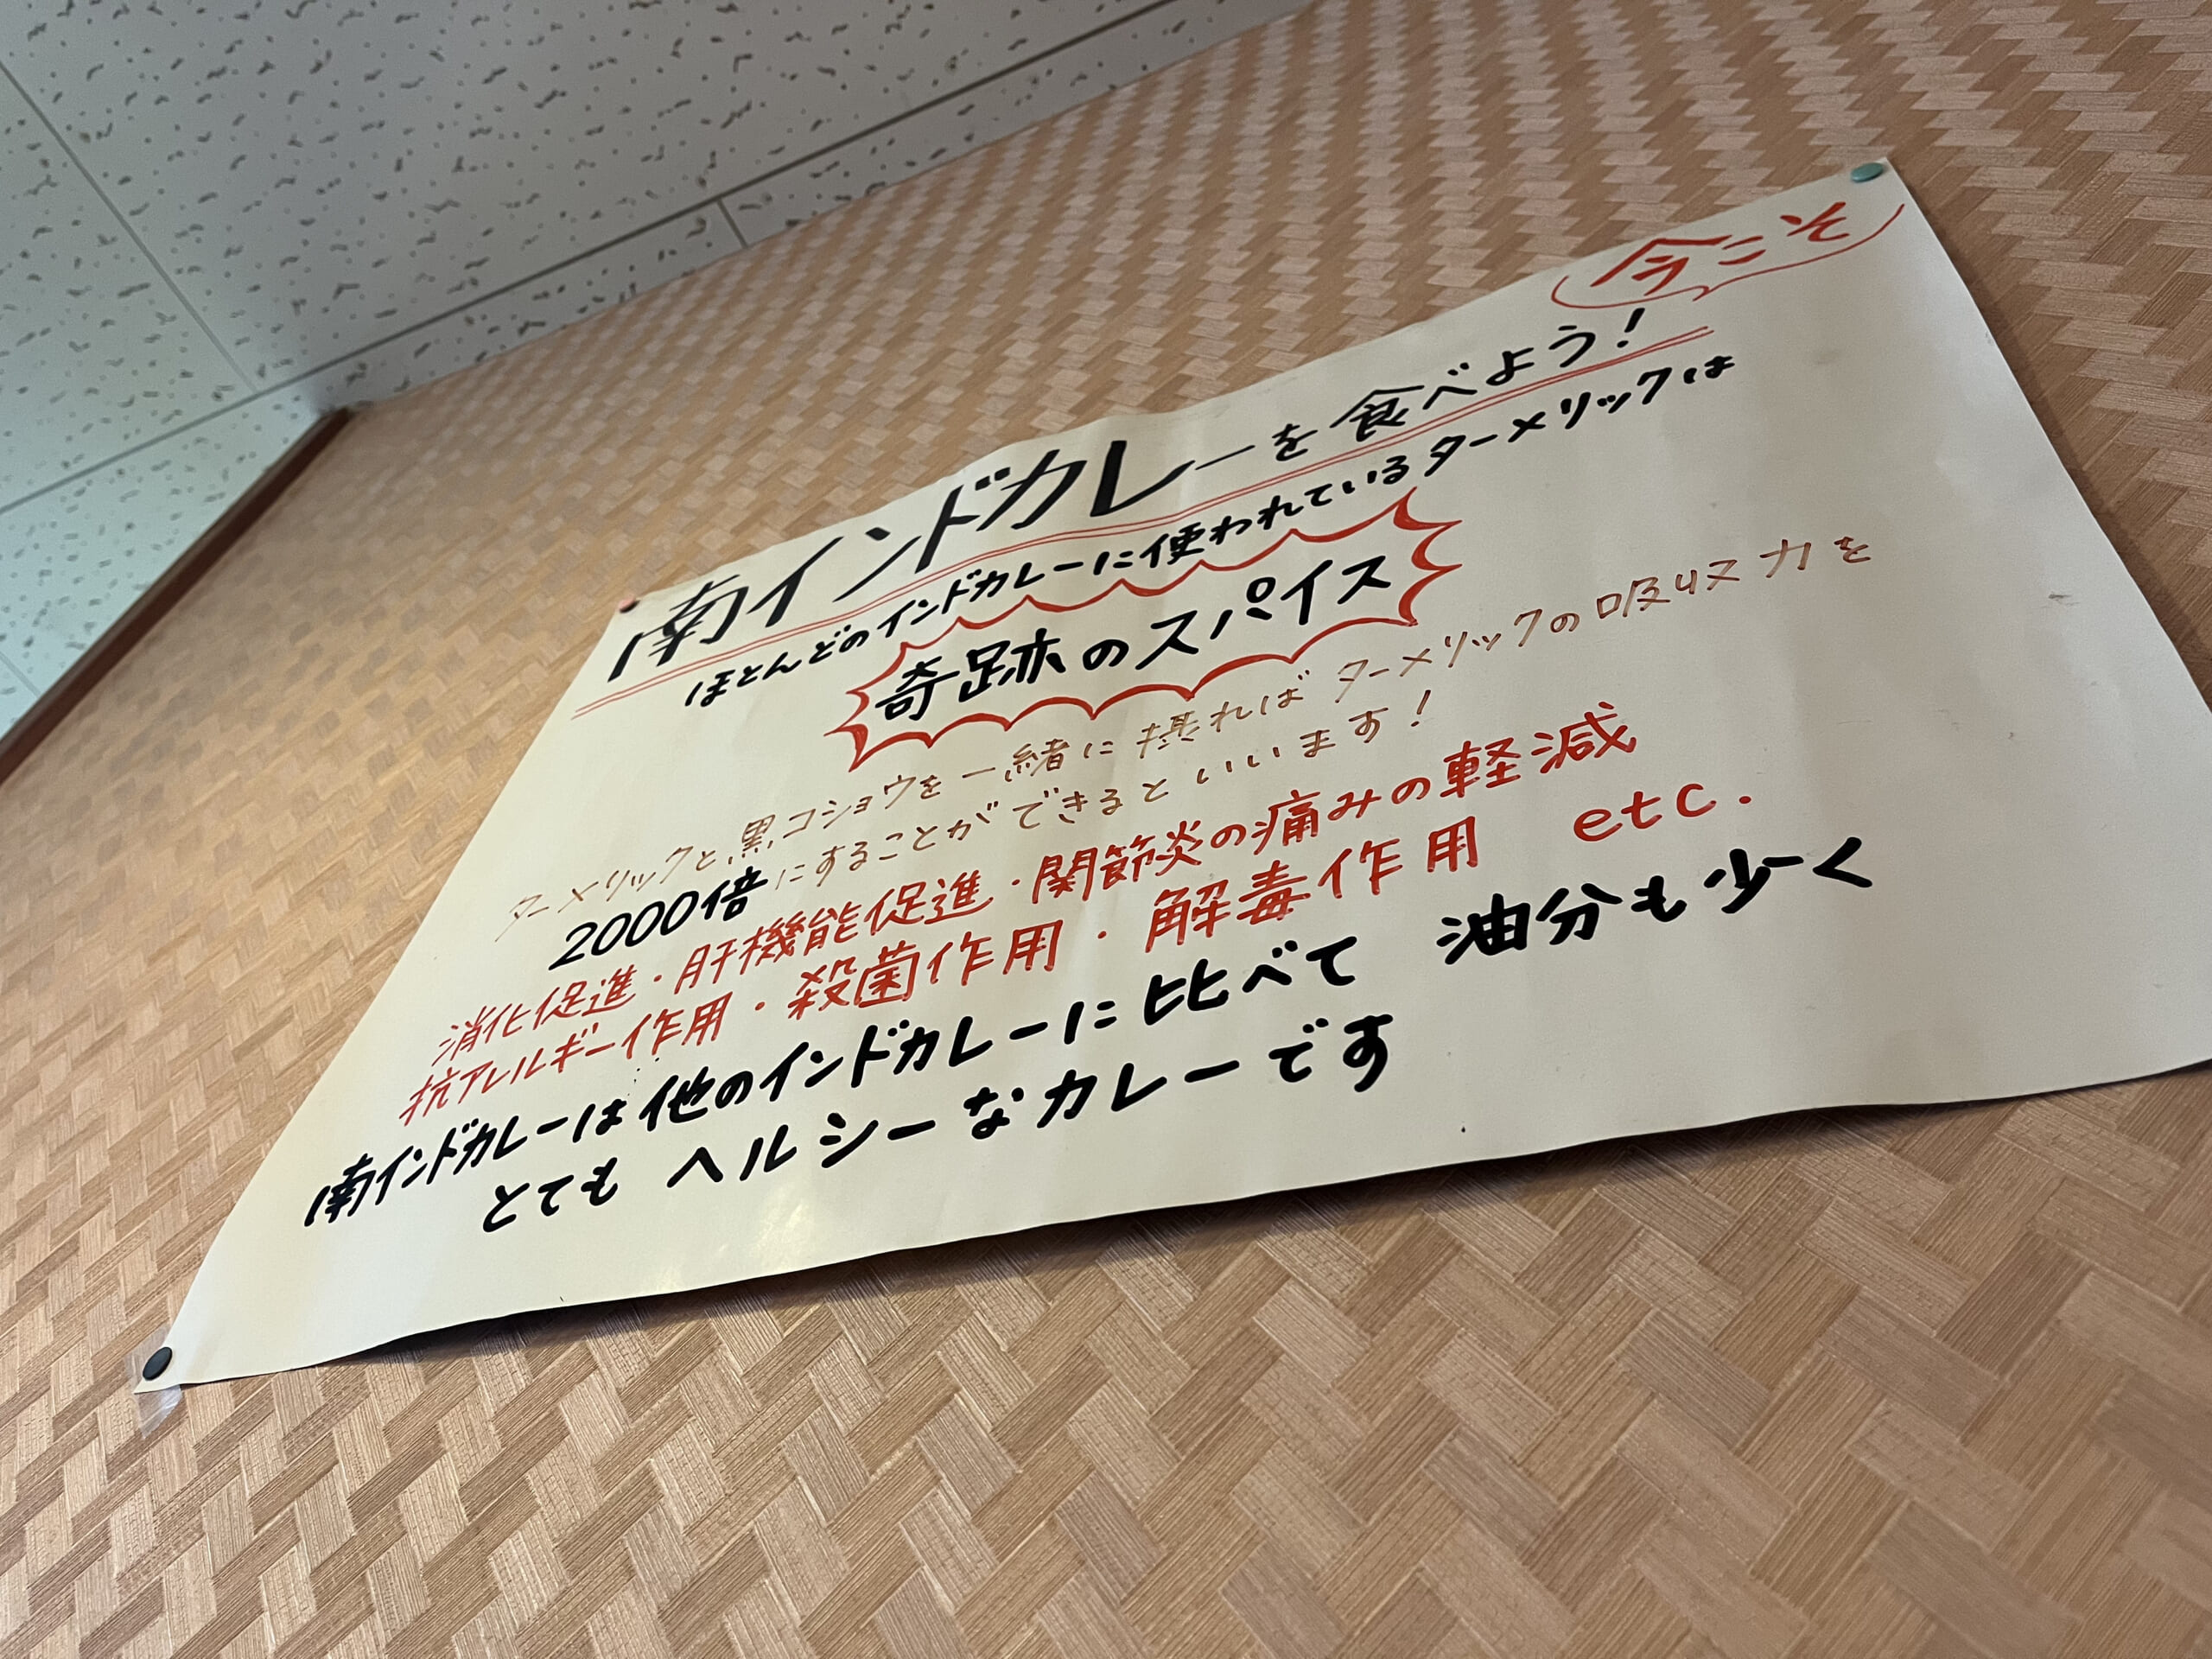 今こそ
南インドカレーを食べよう!
ほとんどのインドカレーに使われているターメリックは
奇跡のスパイス
ターメリックと黒コショウを一緒に摂ればターメリックの吸収力を
2000倍にすることができるといいます!
消化促進・肝機能促進・関節炎の痛みの軽減
抗アレルギー作用・殺菌作用・解毒作用 etc.
南インドカレーは他のインドカレーに比べて 油分も少く
とても ヘルシーなカレーです